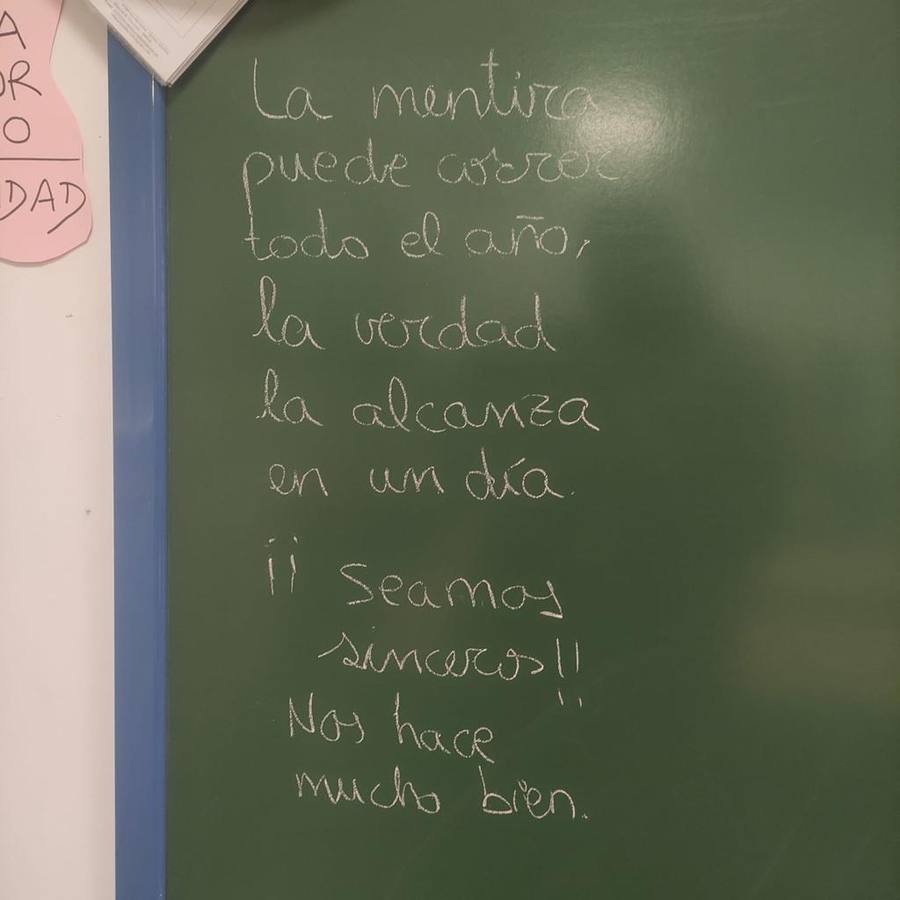 A
OR
O
IDAD
La mentira
puede correr
todo el año,
la verdad
la alcanza
en un día.
¡¡ Seamos
sinceros!!
Nos hace
mucho bien.